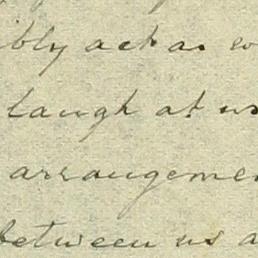 ibly act as
laugh at us
arrangemen
between us a